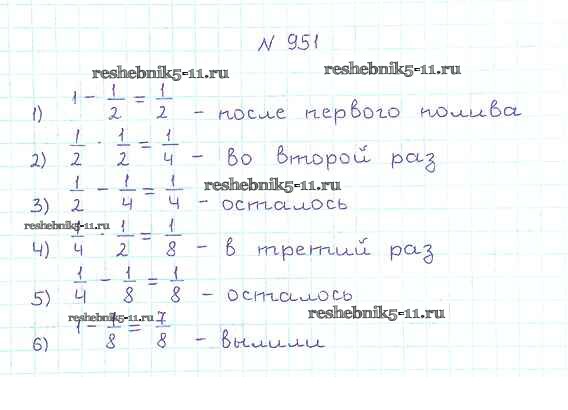 N 951
reshebnik5-11.ru reshebnik5-11.ru
1) 1 - 1/2 = 1/2 - после первого полива
2) 1/2 · 1/2 = 1/4 - во второй раз
reshebnik5-11.ru
3) 1/2 - 1/4 = 1/4 - осталось
reshebnik5-11.ru
4) 1/4 · 1/2 = 1/8 - в третий раз
5) 1/4 - 1/8 = 1/8 - осталось
reshebnik5-11.ru reshebnik5-11.ru
6) 1 - 1/8 = 7/8 - вылили